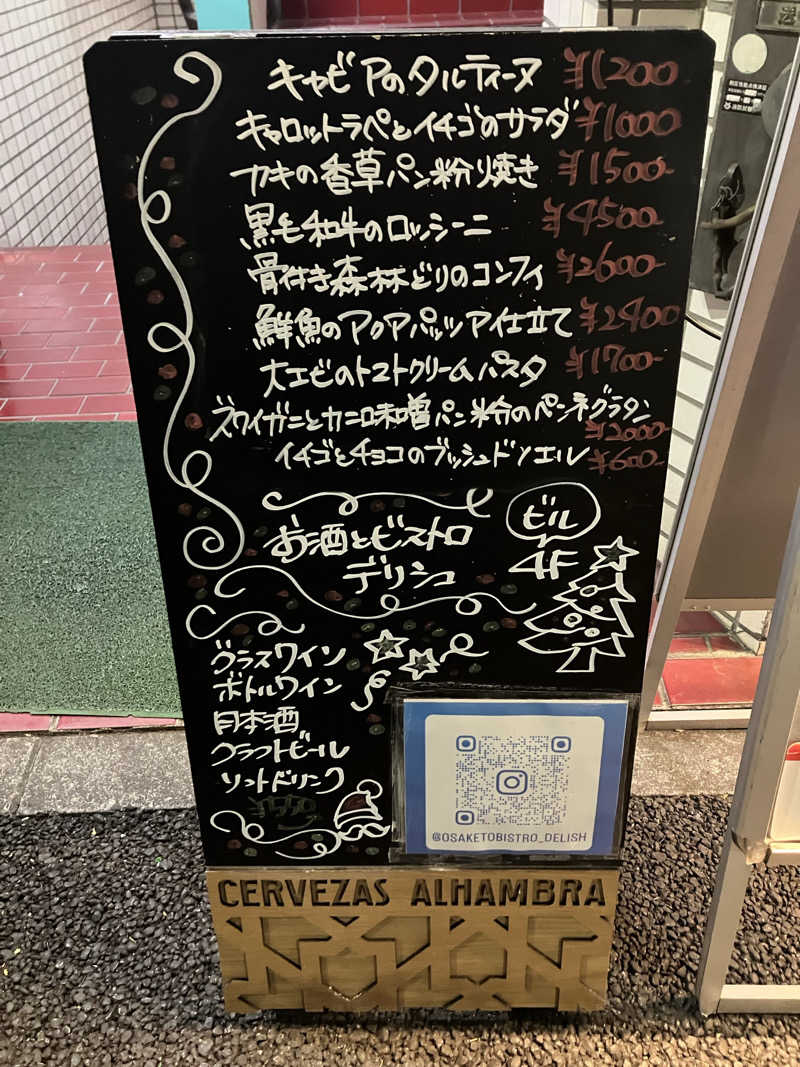 キャビアのタルティーヌ ¥1200
キャロットラペとイチゴのサラダ ¥1000
カキの香草パン粉焼き ¥1500-
黒毛和牛のロッシーニ ¥4500-
骨付き森林どりのコンフィ ¥2600-
鮮魚のアクアパッツア仕立て ¥2400
大エビのトマトクリームパスタ ¥1700-
ズワイガニとカニ味噌パン粉のペンネグラタン
¥2000-
イチゴとチョコのブッシュドノエル ¥600-
お酒とビストロ
デリシュ
ビル
4F
グラスワイン
ボトルワイン
日本酒
クラフトビール
ソフトドリンク
@OSAKETOBISTRO_DELISH
CERVEZAS ALHAMBRA